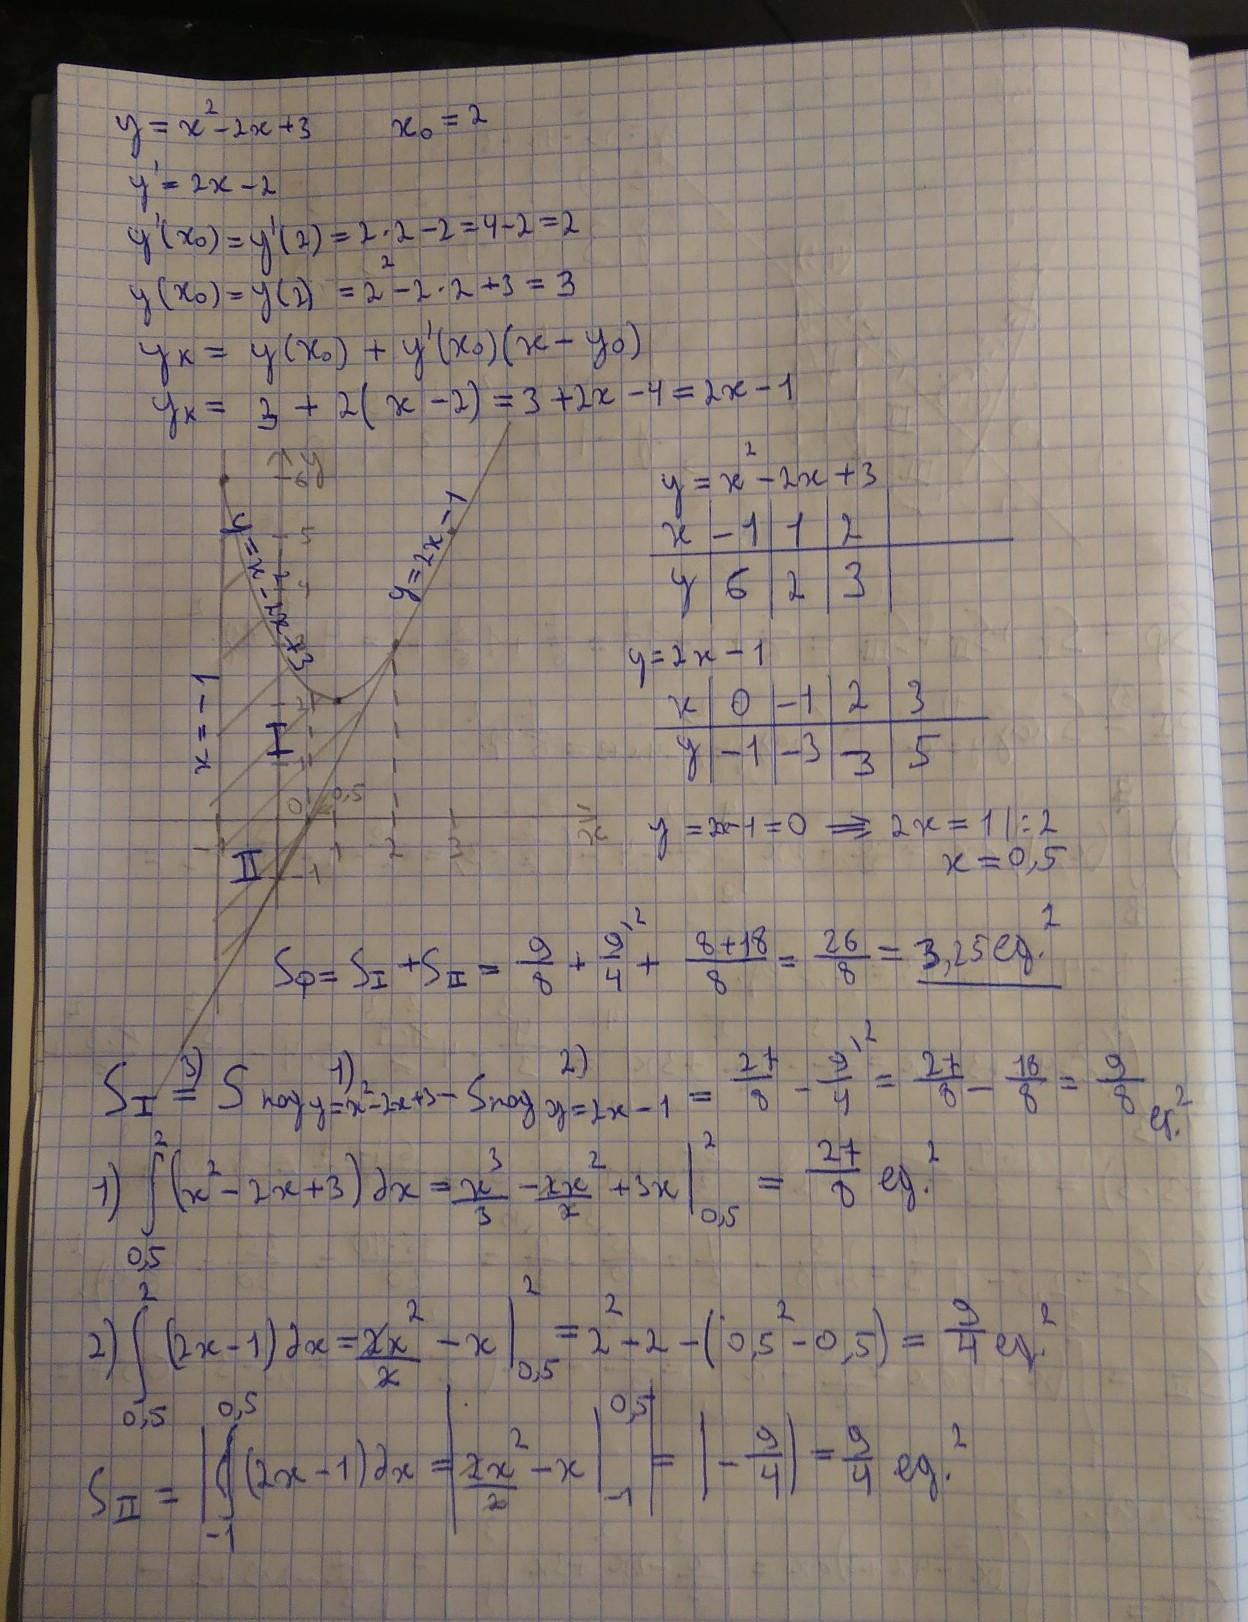 y = x² - 2x + 3    x₀ = 2
y' = 2x - 2
y'(x₀) = y'(2) = 2·2 - 2 = 4 - 2 = 2
y(x₀) = y(2) = 2² - 2·2 + 3 = 3
yк = y(x₀) + y'(x₀)(x - y₀)
yк = 3 + 2(x - 2) = 3 + 2x - 4 = 2x - 1
y
6
5
4
y = x² - 2x + 3
y = 2x - 1
x = -1
I
II
0
0,5
1
2
3
x
-1
y = x² - 2x + 3
x | -1 | 1 | 2
y | 6 | 2 | 3
y = 2x - 1
x | 0 | -1 | 2 | 3
y | -1 | -3 | 3 | 5
y = 2x - 1 = 0 ⇒ 2x = 1 |:2
x = 0,5
Sф = S_I + S_II = 9/8 + 9/4^'2 + (8+18)/8 = 26/8 = 3,25 eg.²
S_I =³⁾ S под y=x²-2x+3 ¹⁾ - S под y=2x-1 ²⁾ = 27/8 - 9/4^'2 = 27/8 - 18/8 = 9/8 eg.²
1) ∫_{0,5}^{2} (x² - 2x + 3) dx = x³/3 - 2x²/2 + 3x |_{0,5}^{2} = 27/8 eg.²
2) ∫_{0,5}^{2} (2x - 1) dx = 2x²/2 - x |_{0,5}^{2} = 2² - 2 - (0,5² - 0,5) = 9/4 eg.²
S_II = |∫_{-1}^{0,5} (2x - 1) dx = |2x²/2 - x |_{-1}^{0,5}| = |-9/4| = 9/4 eg.²